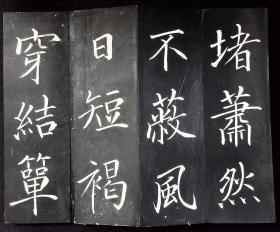 堵蕭然
不蔽風
日短褐
穿結簞